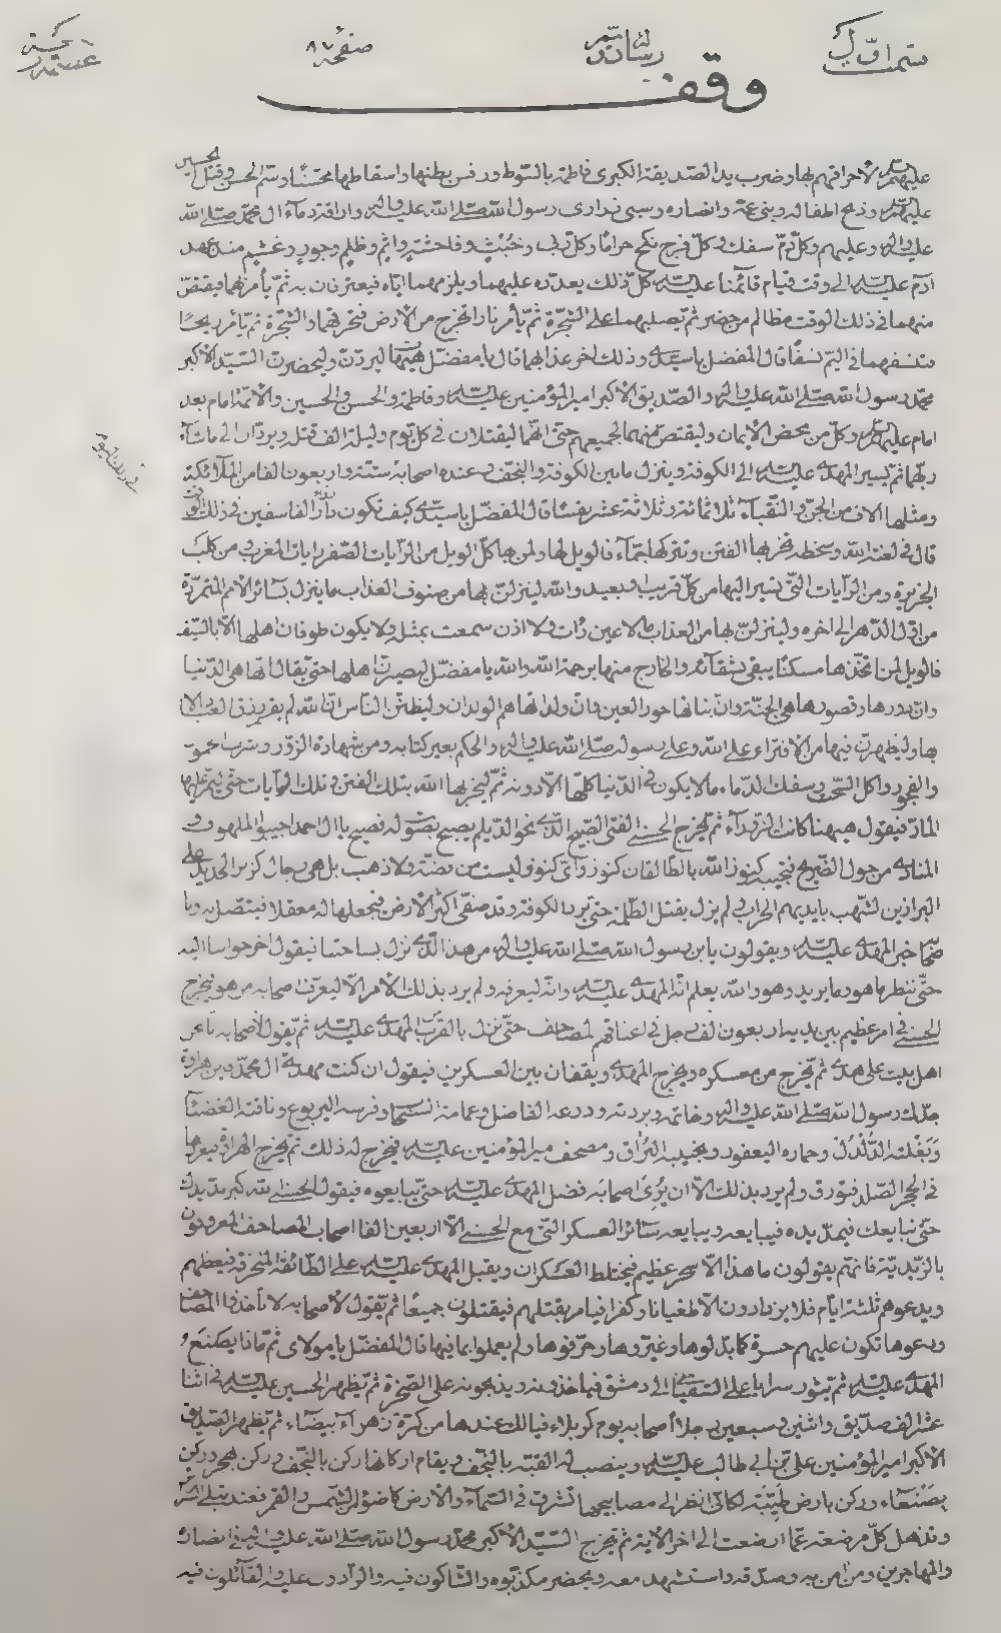 صفحة ٨٧
وقف
عليهم لاحراقهم بها وضرب يد الصديقة الكبرى فاطمة بالسوط ورفس بطنها واسقاطها محسنا وسم الحسن وقتل الحسين
وذبح اطفاله وبنى عمه وانصاره وسبى ذرارى رسول الله صلى الله عليه واله واراقة دماء ال محمد صلى الله
عليه واله وعليهم وكل دم سفك وكل فرج نكح حراما وكل ربى وخبث وفاحشة واثم وظلم وجور وغشم منذ عهد
ادم عليه السلم الى وقت قيام قائمنا عليه السلم كل ذلك يعدده عليهما ويلزمهما اياه فيعترفان به ثم يأمر بهما فيقتص
منهما فى ذلك الوقت مظالم من حضر ثم يصلبهما على الشجرة ثم يأمر نارا تخرج من الارض فتحرقهما والشجرة ثم يأمر ريحا
فتنسفهما فى اليم نسفا قال المفضل يا سيدى وذلك اخر عذابهما قال يا مفضل هيهات ليردن وليحضرن السيد الاكبر
محمد رسول الله صلى الله عليه واله والصديق الاكبر امير المؤمنين عليه السلم وفاطمة والحسن والحسين والائمة امام بعد
امام عليهم السلم وكل من محض الايمان وليقتص منهما لجميعهم حتى انهما ليقتلان فى كل يوم وليلة الف قتل ويردان الى ما شاء
ربهما ثم يسير المهدى عليه السلم الى الكوفة وينزل ما بين الكوفة والنجف وعنده اصحابه ستة واربعون الفا من الملائكة
ومثلها الاف من الجن والنقباء ثلاثمائة وثلاثة عشر نفسا قال المفضل يا سيدى كيف تكون دار الفاسقين فى ذلك الوقت
قال فى لعنة الله وسخطه تخربها الفتن وتتركها جماء فالويل لها ولمن بها كل الويل من الرايات الصفر ورايات المغرب ومن كلب
الجزيرة ومن الرايات التى تسير اليها من كل قريب او بعيد والله لينزلن بها من صنوف العذاب ما ينزل بسائر الامم المتمردة
من اول الدهر الى اخره ولينزلن بها من العذاب ما لا عين رأت ولا اذن سمعت بمثله ولا يكون طوفان اهلها الا بالسيف
فالويل لمن اتخذها مسكنا يبقى بشقائه والخارج منها برحمة الله والله يا مفضل ليصيرن اهلها حتى يقال انها هى الدنيا
وان دورها وقصورها هى الجنة وان بناتها حور العين وان ولدانها هم الولدان وليظنن الناس ان الله لم يقسم رزق العباد الا
بها وليظهرن فيها من الافتراء على الله وعلى رسوله صلى الله عليه واله والحكم بغير كتابه ومن شهادة الزور وشرب الخمور
والفجور واكل السحت وسفك الدماء ما لا يكون فى الدنيا كلها الا دونه ثم ليخربها الله بتلك الفتن وتلك الرايات حتى ليمر عليها
المار فيقول هيهنا كانت الزوراء ثم يخرج الحسنى الفتى الصبيح الذى نحو الديلم يصيح بصوت له فصيح يا ال احمد اجيبوا الملهوف و
المنادى من حول الضريح فتجيبه كنوز الله بالطالقان كنوز واى كنوز ليست من فضة ولا ذهب بل هى رجال كزبر الحديد على
البراذين الشهب بايديهم الحراب ولم يزل يقتل الظلمة حتى يرد الكوفة وقد صفى اكثر الارض فيجعلها له معقلا فيتصل به وبا
صحابه خبر المهدى عليه السلم ويقولون يابن رسول الله صلى الله عليه واله من هذا الذى نزل بساحتنا فيقول اخرجوا بنا اليه
حتى ننظر ما هو وما يريد وهو والله يعلم انه المهدى عليه السلم وانه ليعرفه ولم يرد بذلك الامر الا ليعرف اصحابه من هو فيخرج
الحسنى فى امر عظيم بين يديه اربعون الف رجل فى اعناقهم المصاحف حتى ينزل بالقرب المهدى عليه السلم ثم يقول لاصحابه
اهل بيت على هدى ثم يخرج من معسكره ويخرج المهدى ويقفان بين العسكرين فيقول ان كنت مهدى ال محمد فاين هراوة
جدك رسول الله صلى الله عليه واله وخاتمه وبردته ودرعه الفاضل وعمامته السحاب وفرسه اليربوع وناقته العضباء
وبغلته الدلدل وحماره اليعفور ونجيبه البراق ومصحف امير المؤمنين عليه السلم فيخرج له ذلك ثم يخرج الهراوة فيغرسها
فى الحجر الصلد فتورق ولم يرد بذلك الا ان يرى اصحابه فضل المهدى عليه السلم حتى يبايعوه فيقول الحسنى الله اكبر مد يدك
حتى نبايعك فيمد يده فيبايعه ويبايعه سائر العسكر التى مع الحسنى الا اربعين الفا اصحاب المصاحف المعروفون
بالزيدية فانهم يقولون ما هذا الا سحر عظيم فيختلط العسكران ويقبل المهدى عليه السلم على الطائفة المنحرفة فيعظهم
ويدعوهم ثلثة ايام فلا يزدادون الا طغيانا وكفرا فيأمر بقتلهم فيقتلون جميعا ثم يقول لاصحابه لا تأخذوا المصاحف
ودعوها تكون عليهم حسرة كما بدلوها وغيروها وحرفوها ولم يعملوا بما فيها قال المفضل يا مولاى ثم ماذا يصنع
المهدى عليه السلم ثم يثور سرايا على السفيانى الى دمشق فيأخذونه ويذبحونه على الصخرة ثم يظهر الحسين عليه السلم فى اثنا
عشر الف صديق واثنين وسبعين رجلا اصحابه يوم كربلاء فيالك عندها من كرة زهراء بيضاء ثم يظهر الصديق
الاكبر امير المؤمنين على بن ابى طالب عليه السلم وينصب له القبة بالنجف ويقام اركانها ركن بالنجف وركن بهجر وركن
بصنعاء وركن بارض طيبة لكانى انظر الى مصابيحها تشرق فى السماء والارض كاضوء من الشمس والقمر فعندها تبلى السرائر
وتذهل كل مرضعة عما ارضعت الى اخر الاية ثم يخرج السيد الاكبر محمد رسول الله صلى الله عليه واله فى انصاره
والمهاجرين ومن امن به وصدقه واستشهد معه ويحضر مكذبوه والشاكون فيه والرادون عليه والقائلون فيه